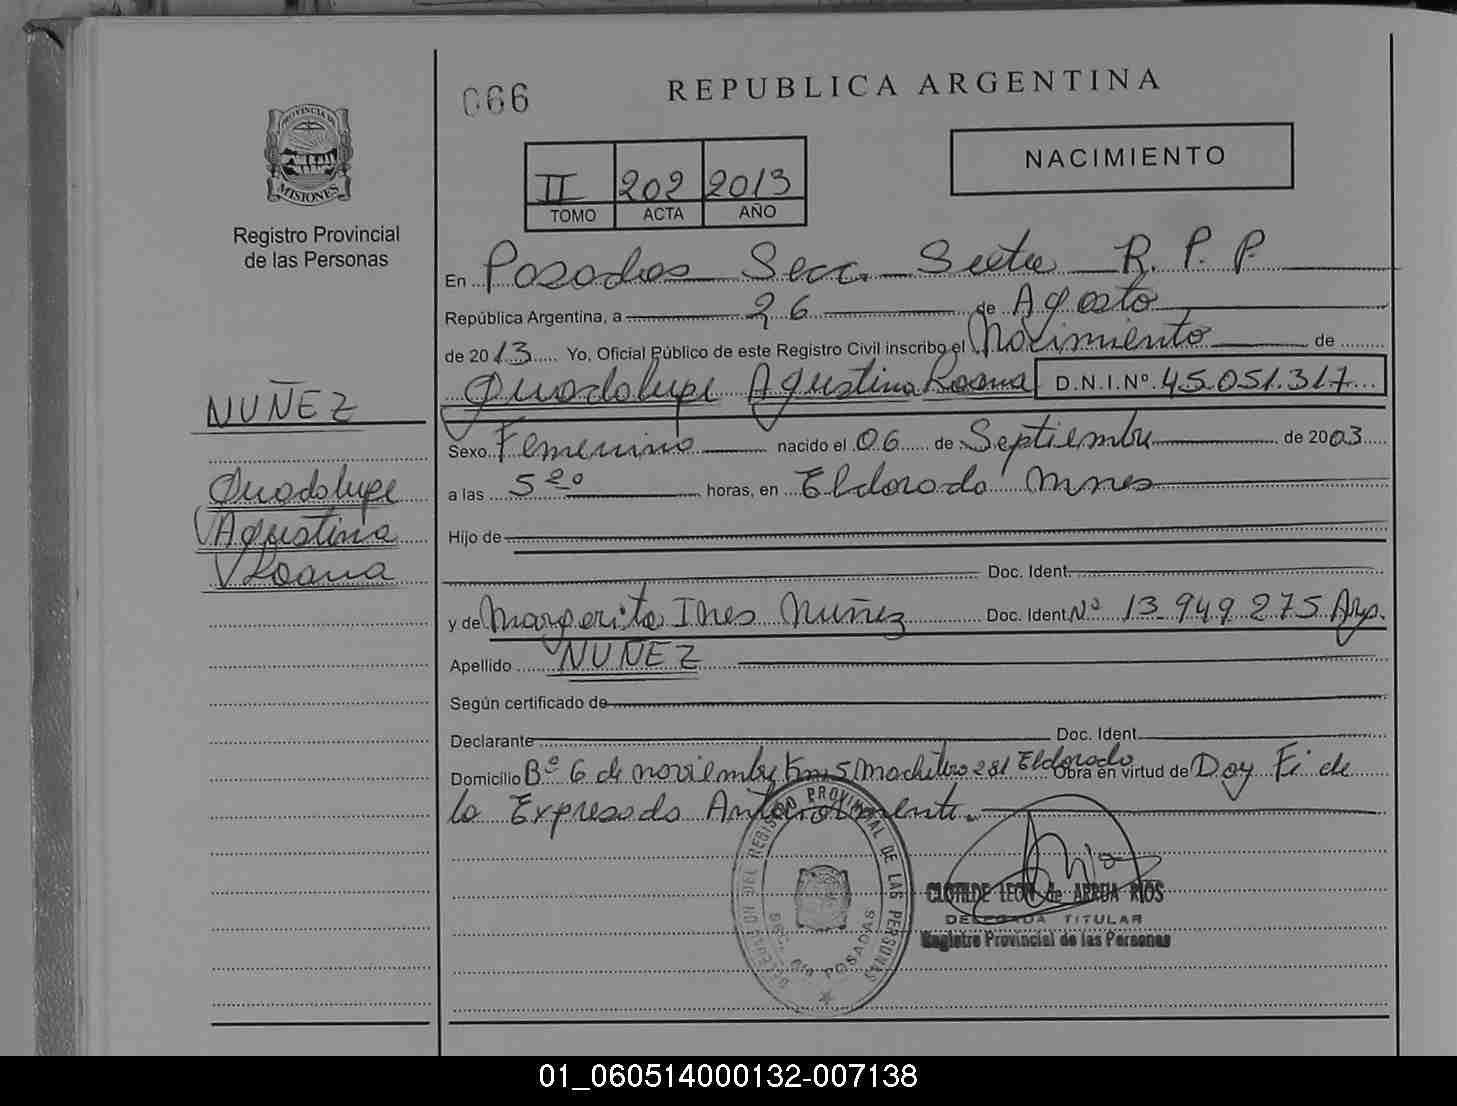 066
REPUBLICA ARGENTINA
PROVINCIA DE
MISIONES
Registro Provincial
de las Personas
II 202 2013
TOMO ACTA AÑO
NACIMIENTO
En Posadas Secc. Sexta R. P. P.
República Argentina, a 26 de Agosto
de 2013 Yo, Oficial Público de este Registro Civil inscribo el Nacimiento de
Guadalupe Agustina Roana D.N.I.Nº. 45.051.317
NUÑEZ
Guadalupe
Agustina
Roana
Sexo Femenino nacido el 06 de Septiembre de 2003
a las 5 20 horas, en Eldorado Mnes
Hijo de
Doc. Ident.
y de Margarita Ines Nuñez Doc. Ident. Nº 13.949.275 Arg.
Apellido NUÑEZ
Según certificado de
Declarante Doc. Ident.
Domicilio Bº 6 de noviembre Km 5 281 Eldorado Obra en virtud de Doy Fé de
lo Expresado Anteriormente.
DIRECCION DEL REGISTRO PROVINCIAL DE LAS PERSONAS
SEC. 6ta POSADAS
CLOTILDE LEON de ARRUA RIOS
DELEGADA TITULAR
Registro Provincial de las Personas
01_060514000132-007138